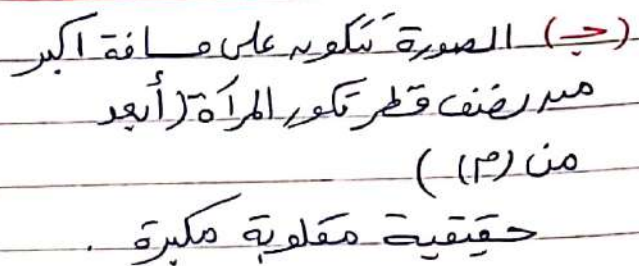 (جـ) الصورة تتكون على مسافة اكبر
من نصف قطر تكور المرآة (أبعد
من (م) )
حقيقية مقلوبة مكبرة .